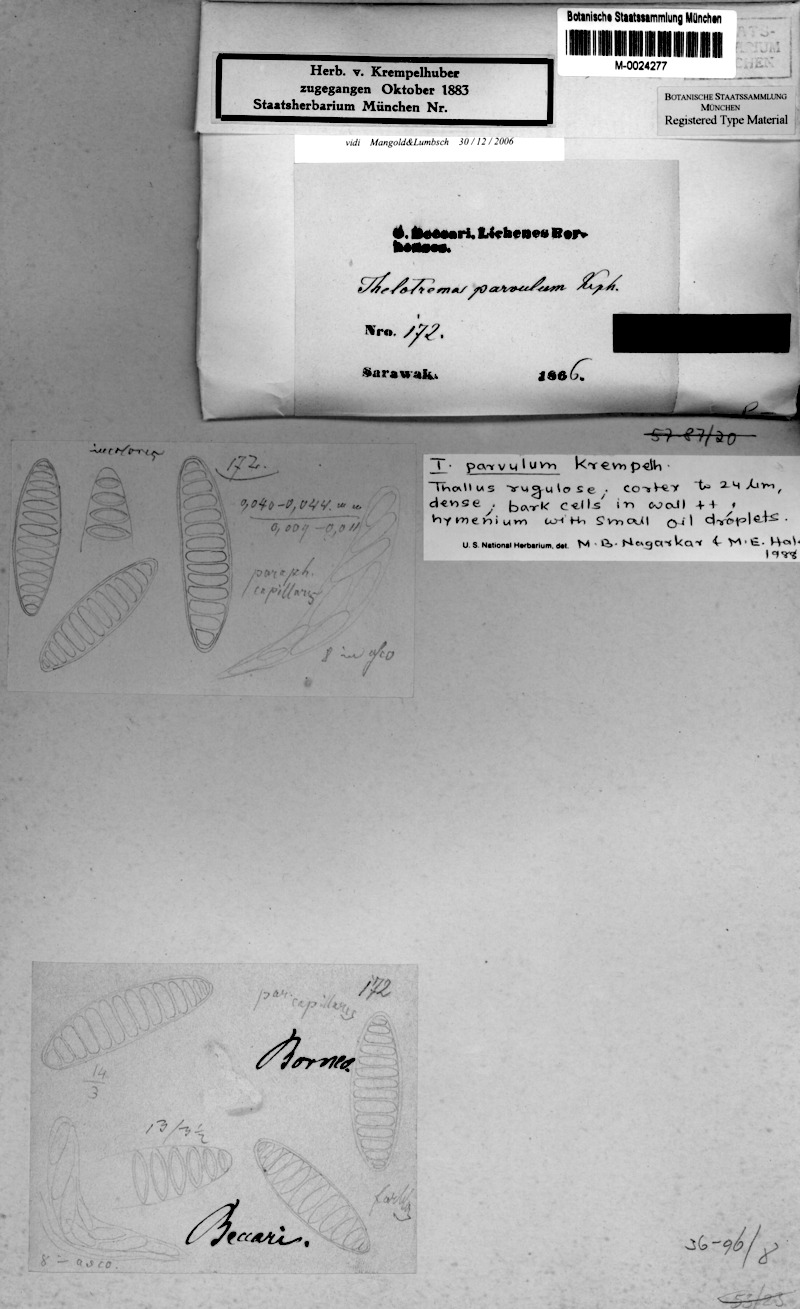 Botanische Staatssammlung München
M-0024277
Herb. v. Krempelhuber
zugegangen Oktober 1883
Staatsherbarium München Nr.
BOTANISCHE STAATSSAMMLUNG
MÜNCHEN
Registered Type Material
vidi Mangold&Lumbsch 30 / 12 / 2006
O. Beccari, Lichenes Bor-
neenses.
Thelotrema parvulum Krph.
Nro. 172.
Sarawak. 1866.
57-87/20
T. parvulum Krempelh.
Thallus rugulose, cortex to 24 um,
dense, bark cells in wall ++,
hymenium with small oil droplets.
U. S. National Herbarium, det. M. B. Nagarkar & M. E. Hal
1988
172.
0,040-0,044. m m
0,009-0,011
paraph.
capillares
8 in asco
172
par. capillaris
Borneo.
14
3
13/3½
Beccari.
8 - asco.
36-96/8